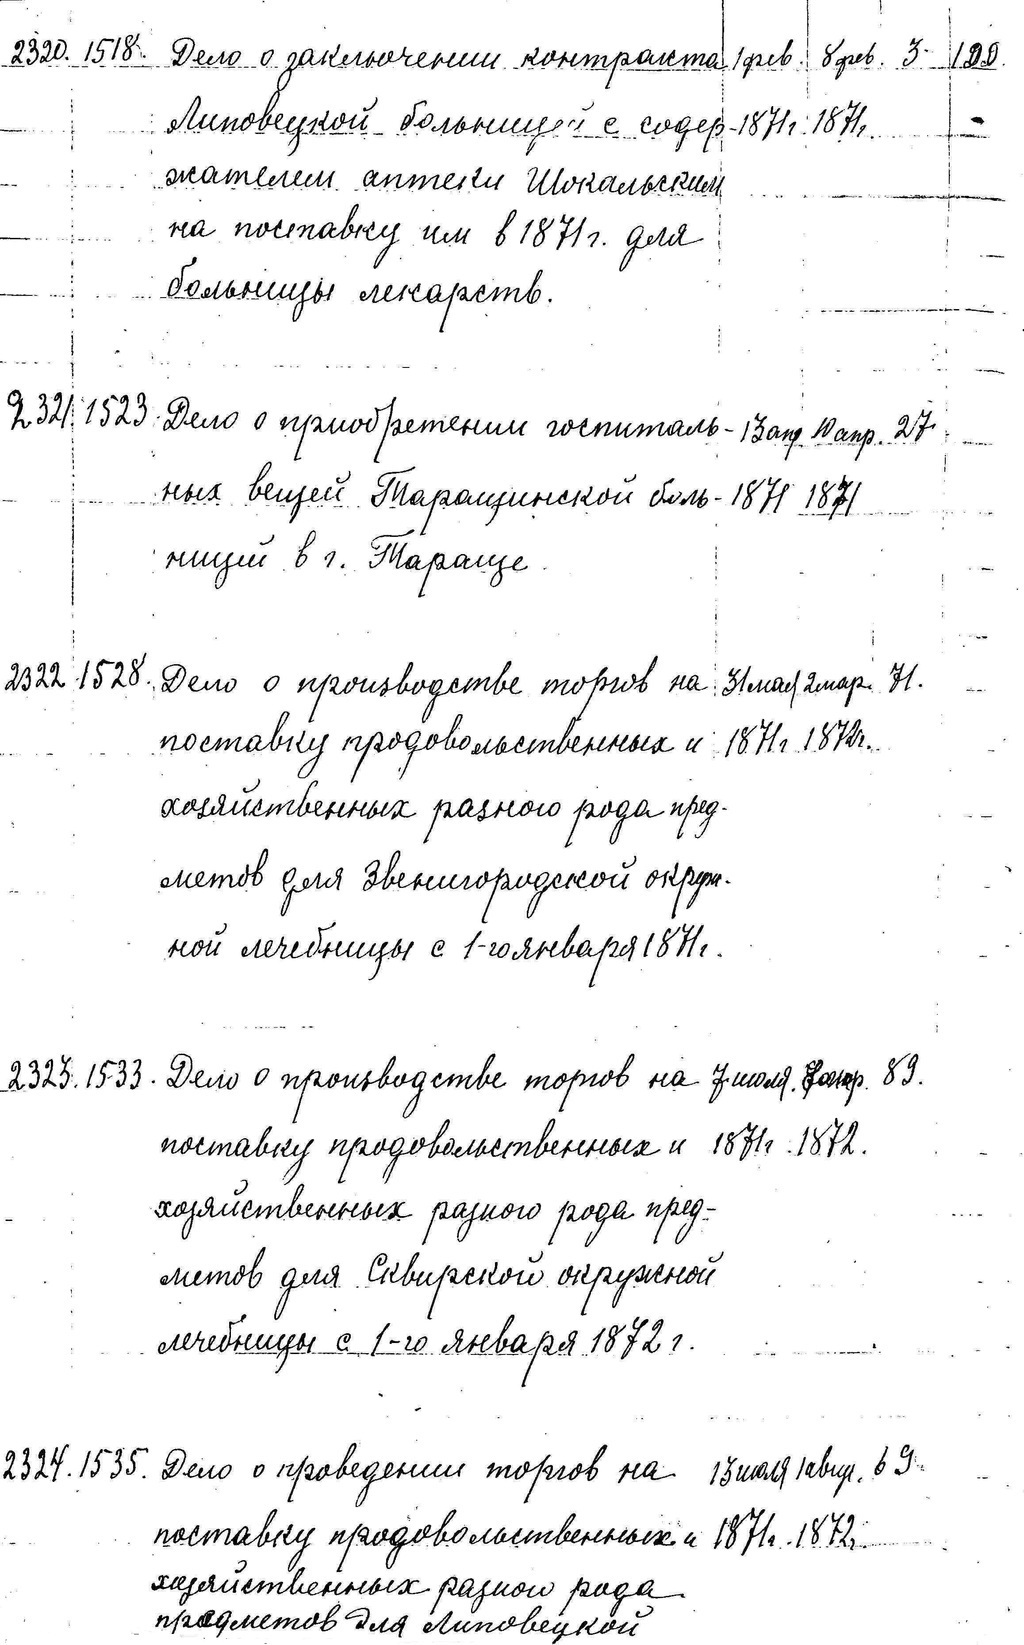 2320. 1518. Дело о заключении контракта 1 фев. 8 фев. 3
Липовецкой больницей с содер- 1871г. 1871г.
жателем аптеки Шокальским
на поставку им в 1871г. для
больницы лекарств.
2321. 1523. Дело о приобретении госпиталь- 13 апр 10 апр. 27
ных вещей Таращинской боль- 1871 1871
ницей в г. Тараще.
2322 1528. Дело о производстве торгов на 31 мая 2 мар. 71.
поставку продовольственных и 1871г 1872г.
хозяйственных разного рода пред-
метов для Звенигородской окруж-
ной лечебницы с 1-го января 1871г.
2323. 1533. Дело о производстве торгов на 7 июля. 89.
поставку продовольственных и 1871г. 1872.
хозяйственных разного рода пред-
метов для Сквирской окружной
лечебницы с 1-го января 1872 г.
2324. 1535. Дело о проведении торгов на 13 июля 1 авг. 69.
поставку продовольственных и 1871г. 1872г.
хозяйственных разного рода
предметов для Липовецкой